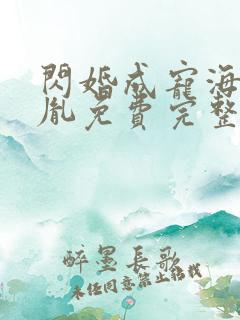 閃婚成寵海
胤免費完整
醉墨長歌
未經同意禁止轉載